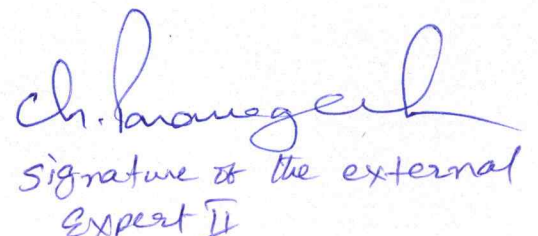 Ch.
signature of the external
Expert II